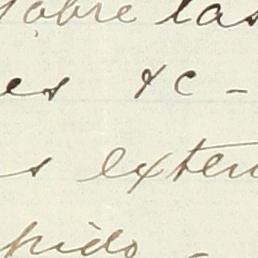 sobre las
es &c -
s exten
pido